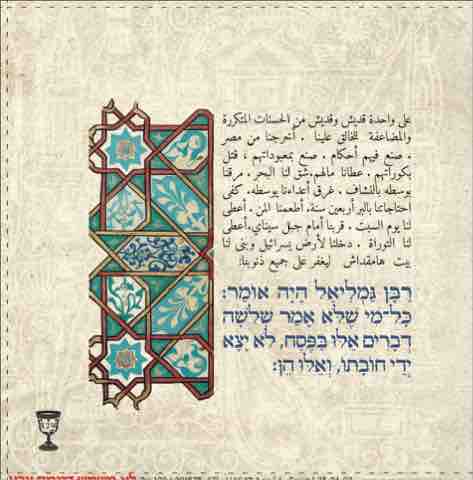 على واحدة قديش وقديش من الحسنات المتكررة
والمضاعفة للخالق علينا . أخرجنا من مصر
. صنع فيهم أحكام . صنع بمعبوداتهم ، قتل
بكوراتهم . عطانا مالهم.شق لنا البحر . مرقنا
بوسطه بالنشاف . غرق أعداءنا بوسطه. كفى
احتاجاتنا بالبر أربعين سنة. أطعمنا المن . أعطى
لنا يوم السبت . قربنا أمام جبل سيناي.أعطى
لنا التوراة . دخلنا لأرض يسرائيل وبنى لنا
بيت هامقداش ليغفر على جميع ذنوبنا:
רַבָּן גַּמְלִיאֵל הָיָה אוֹמֵר:
כָּל־מִי שֶׁלֹּא אָמַר שְׁלֹשָׁה
דְּבָרִים אֵלּוּ בַּפֶּסַח, לֹא יָצָא
יְדֵי חוֹבָתוֹ, וְאֵלּוּ הֵן: